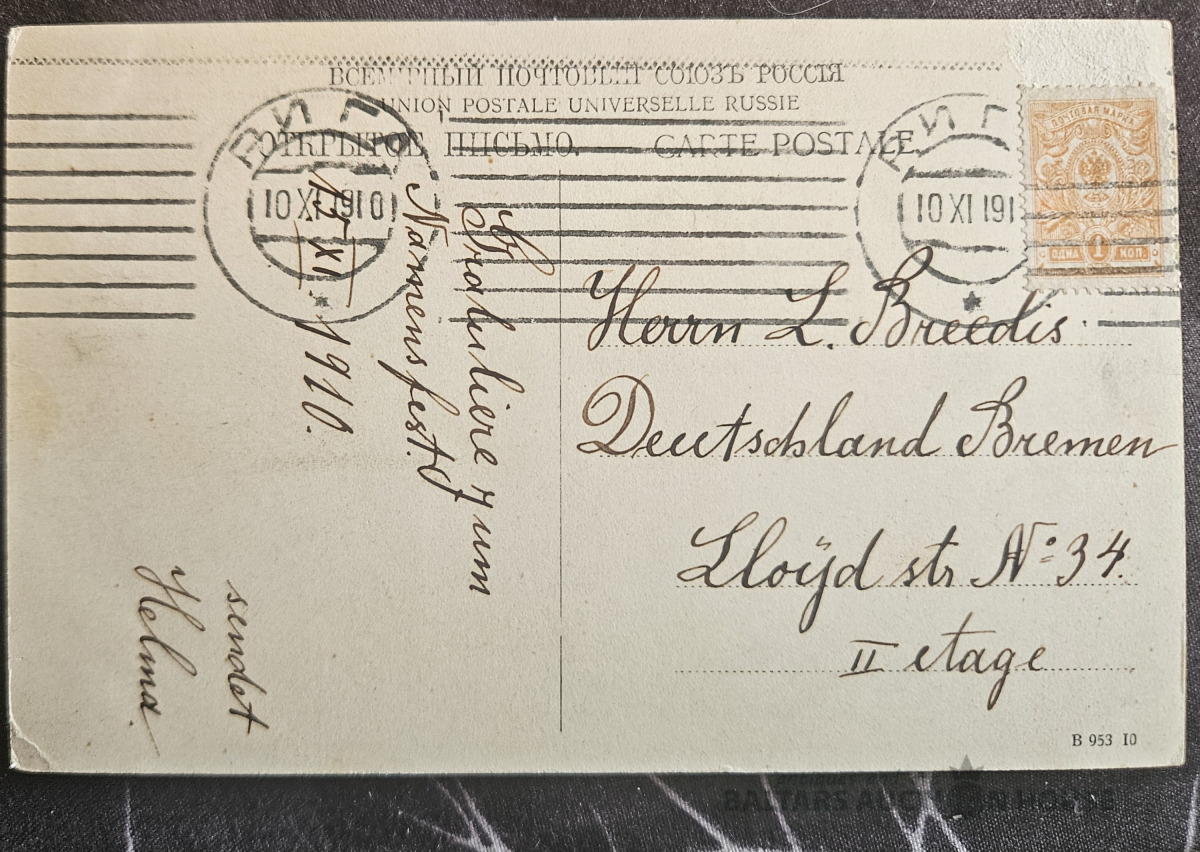 ВСЕМІРНЫЙ ПОЧТОВЫЙ СОЮЗЪ РОССІЯ
UNION POSTALE UNIVERSELLE RUSSIE
ОТКРЫТОЕ ПИСЬМО. — CARTE POSTALE
РИГ
10 XI 1910
РИГ
10 XI 191
ПОЧТОВАЯ МАРКА
ОДНА 1 КОП.
Herrn L. Breedis
Deutschland Bremen
Lloÿd str № 34.
II etage
Gratuliere zum
Namensfest.
XI 1910.
sendet
Helma.
B 953 10
BALTARS AUCTION HOUSE